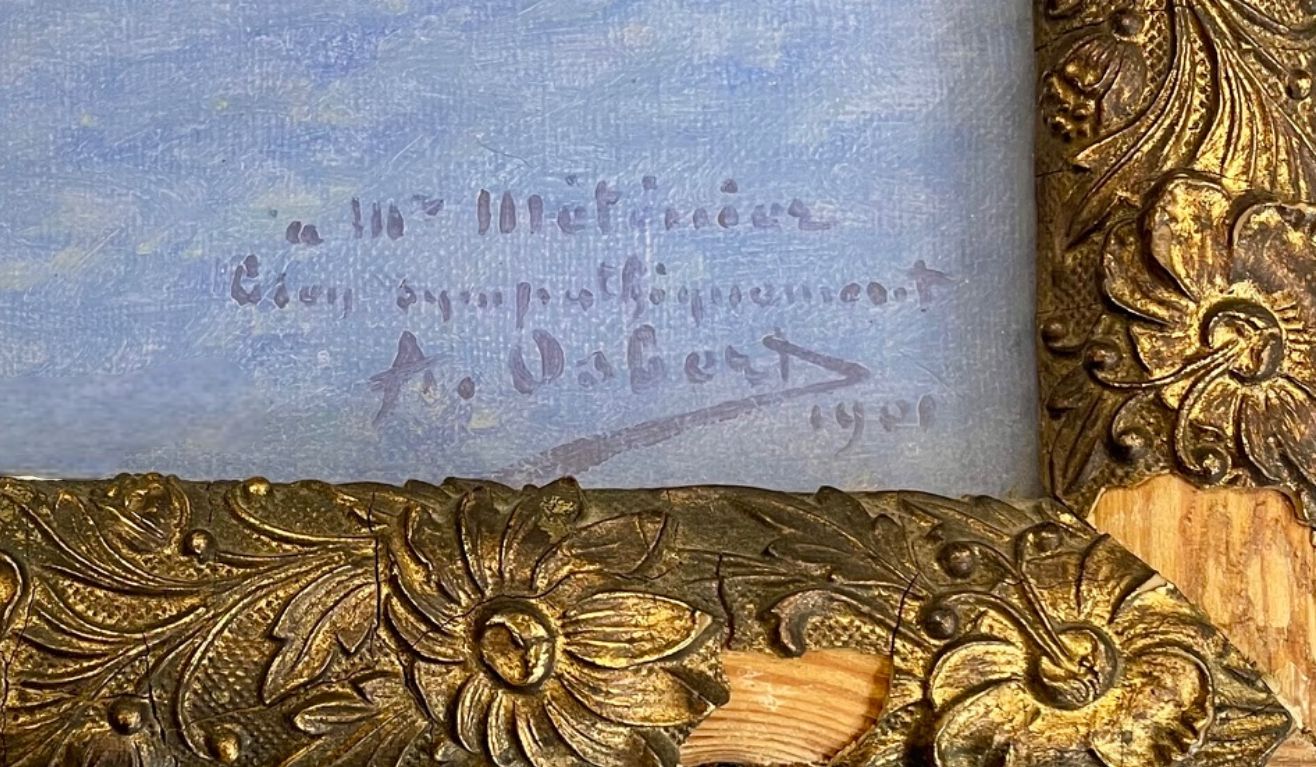 a Mr Méténier
bien sympathiquement
A. Osbert
1901